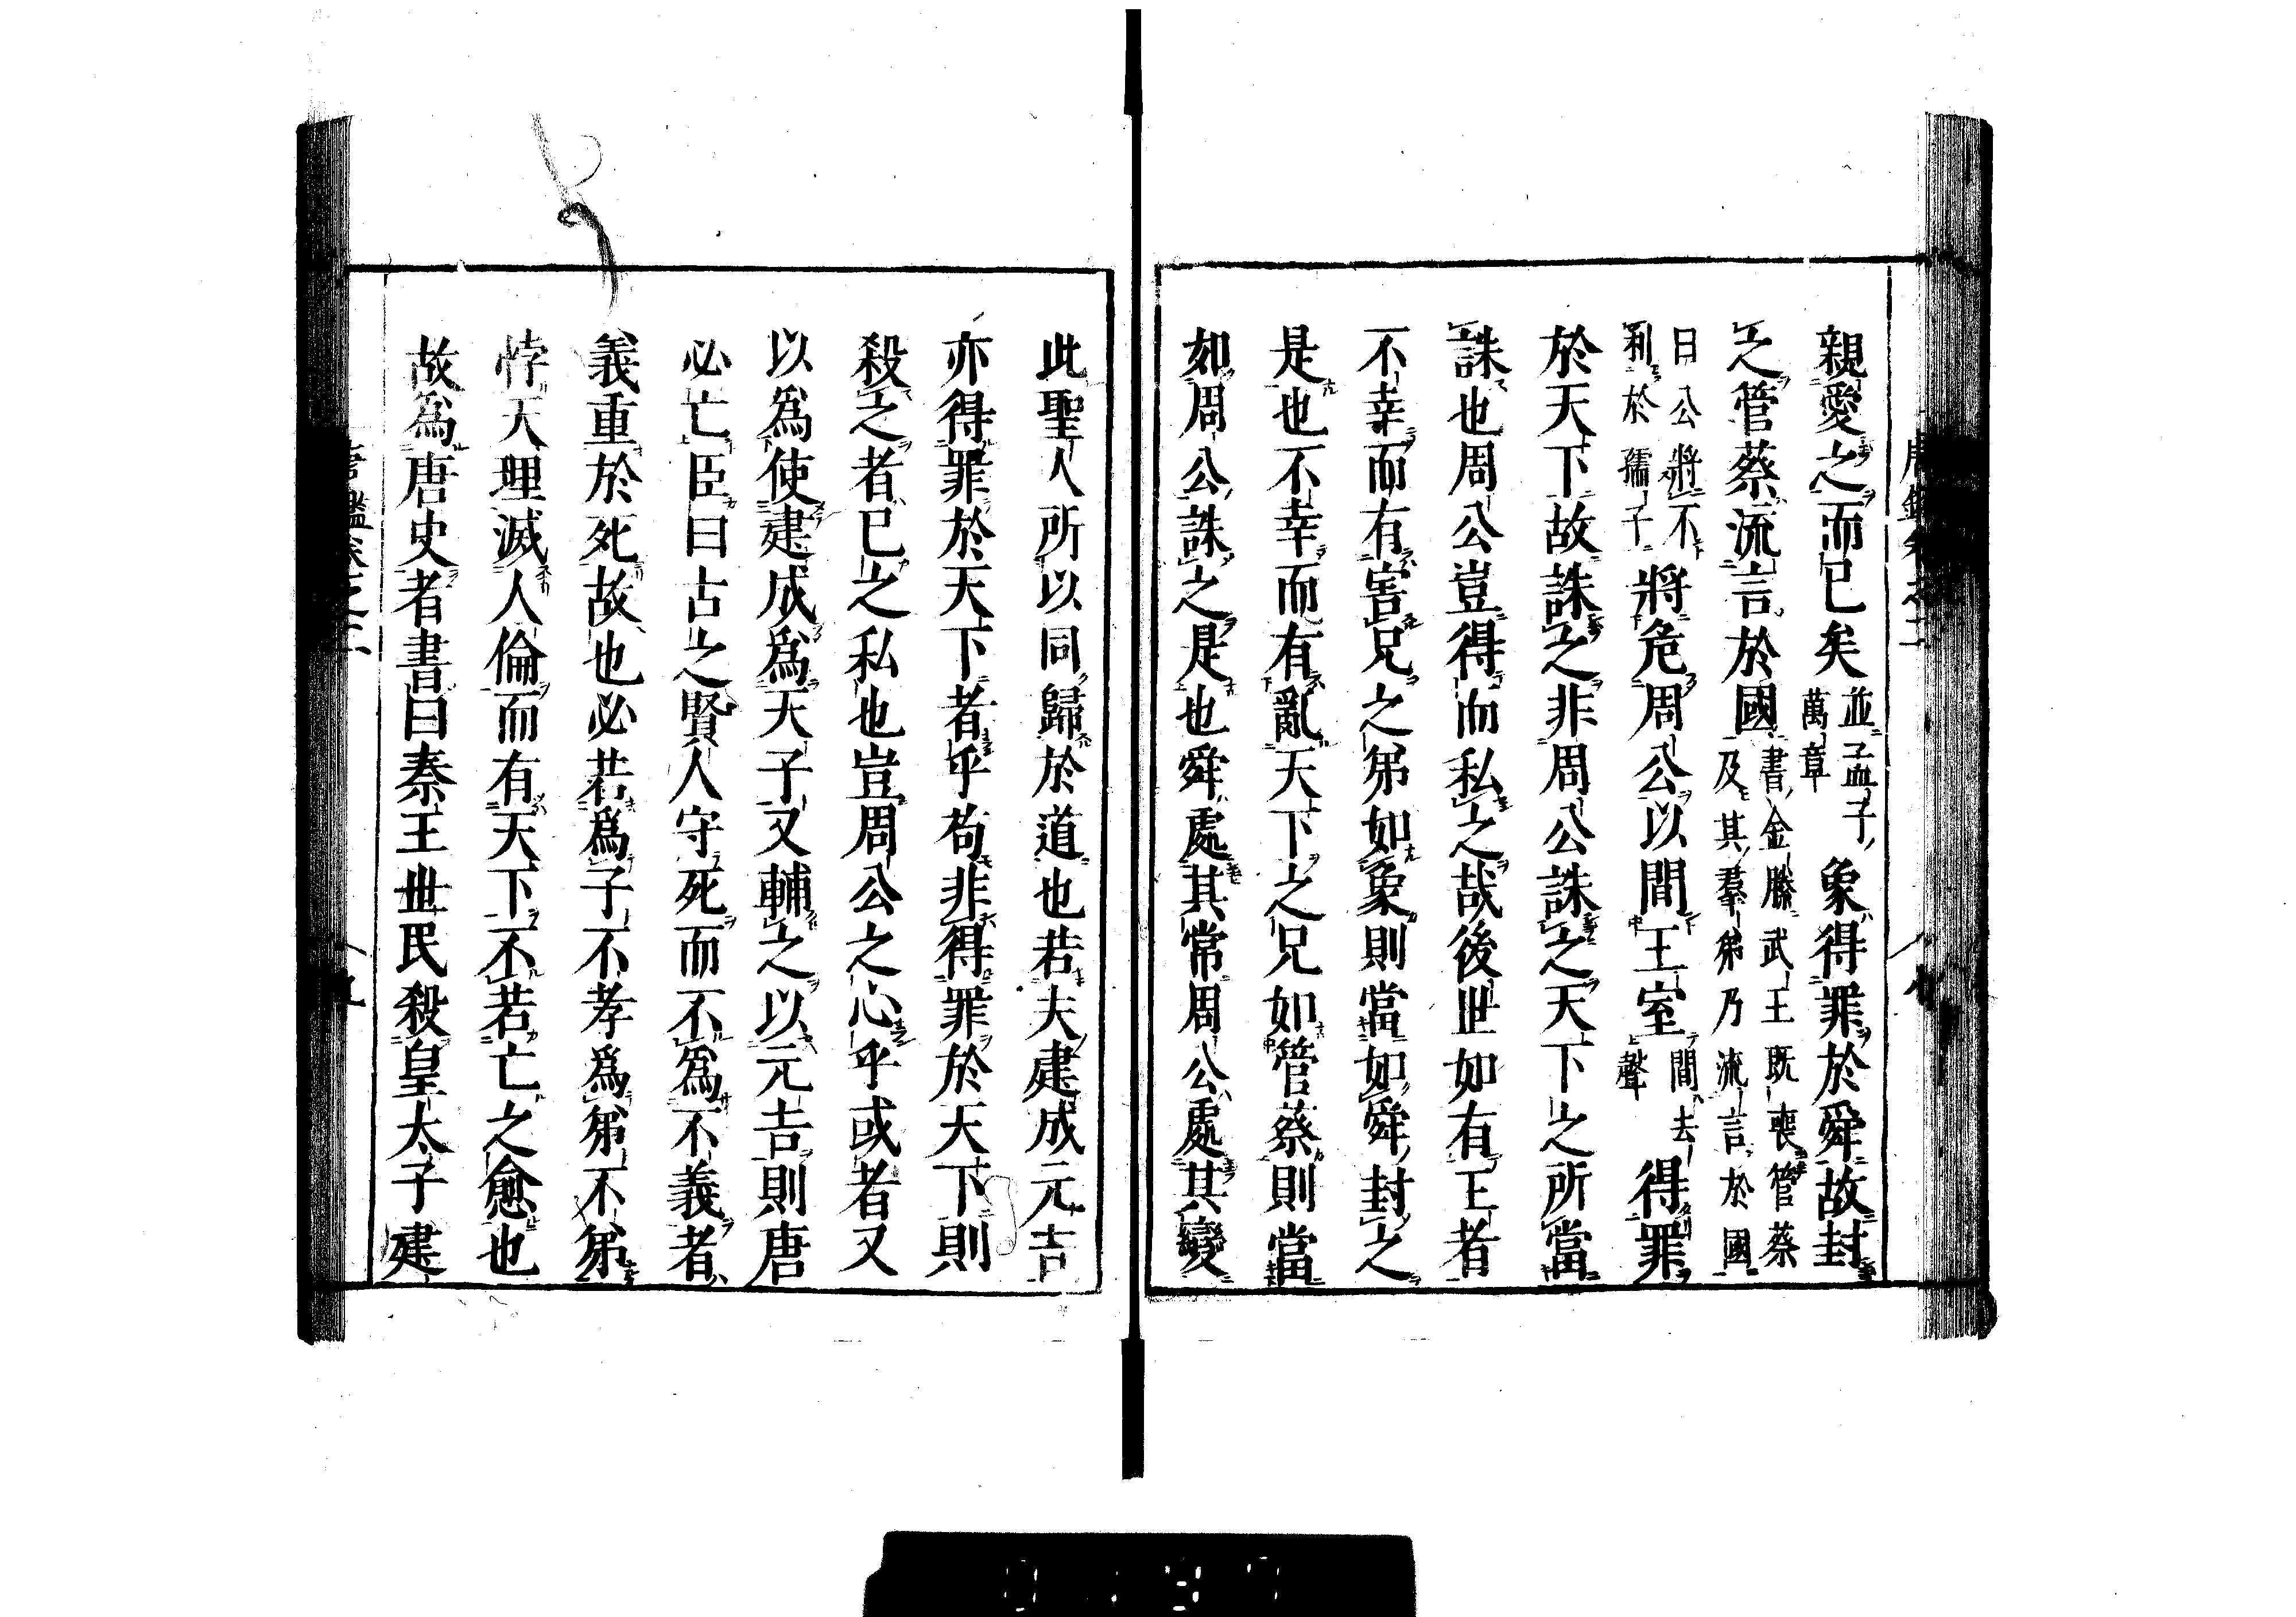 親愛之而已矣並孟子萬章象得罪於舜故封
之管蔡流言於國書金縢武王既喪管蔡及其羣弟乃流言於國
曰公將不利於孺子將危周公以間王室間去聲得罪
於天下故誅之非周公誅之天下之所當
誅也周公豈得而私之哉後世如有王者
不幸而有害兄之弟如象則當如舜封之
是也不幸而有亂天下之兄如管蔡則當
如周公誅之是也舜處其常周公處其變
此聖人所以同歸於道也若夫建成元吉
亦得罪於天下者乎苟非得罪於天下則
殺之者已之私也豈周公之心乎或者又
以爲使建成爲天子又輔之以元吉則唐
必亡臣曰古之賢人守死而不爲不義者
義重於死故也必若爲子不孝爲弟不弟
悖天理滅人倫而有天下不若亡之愈也
故爲唐史者書曰秦王世民殺皇太子建